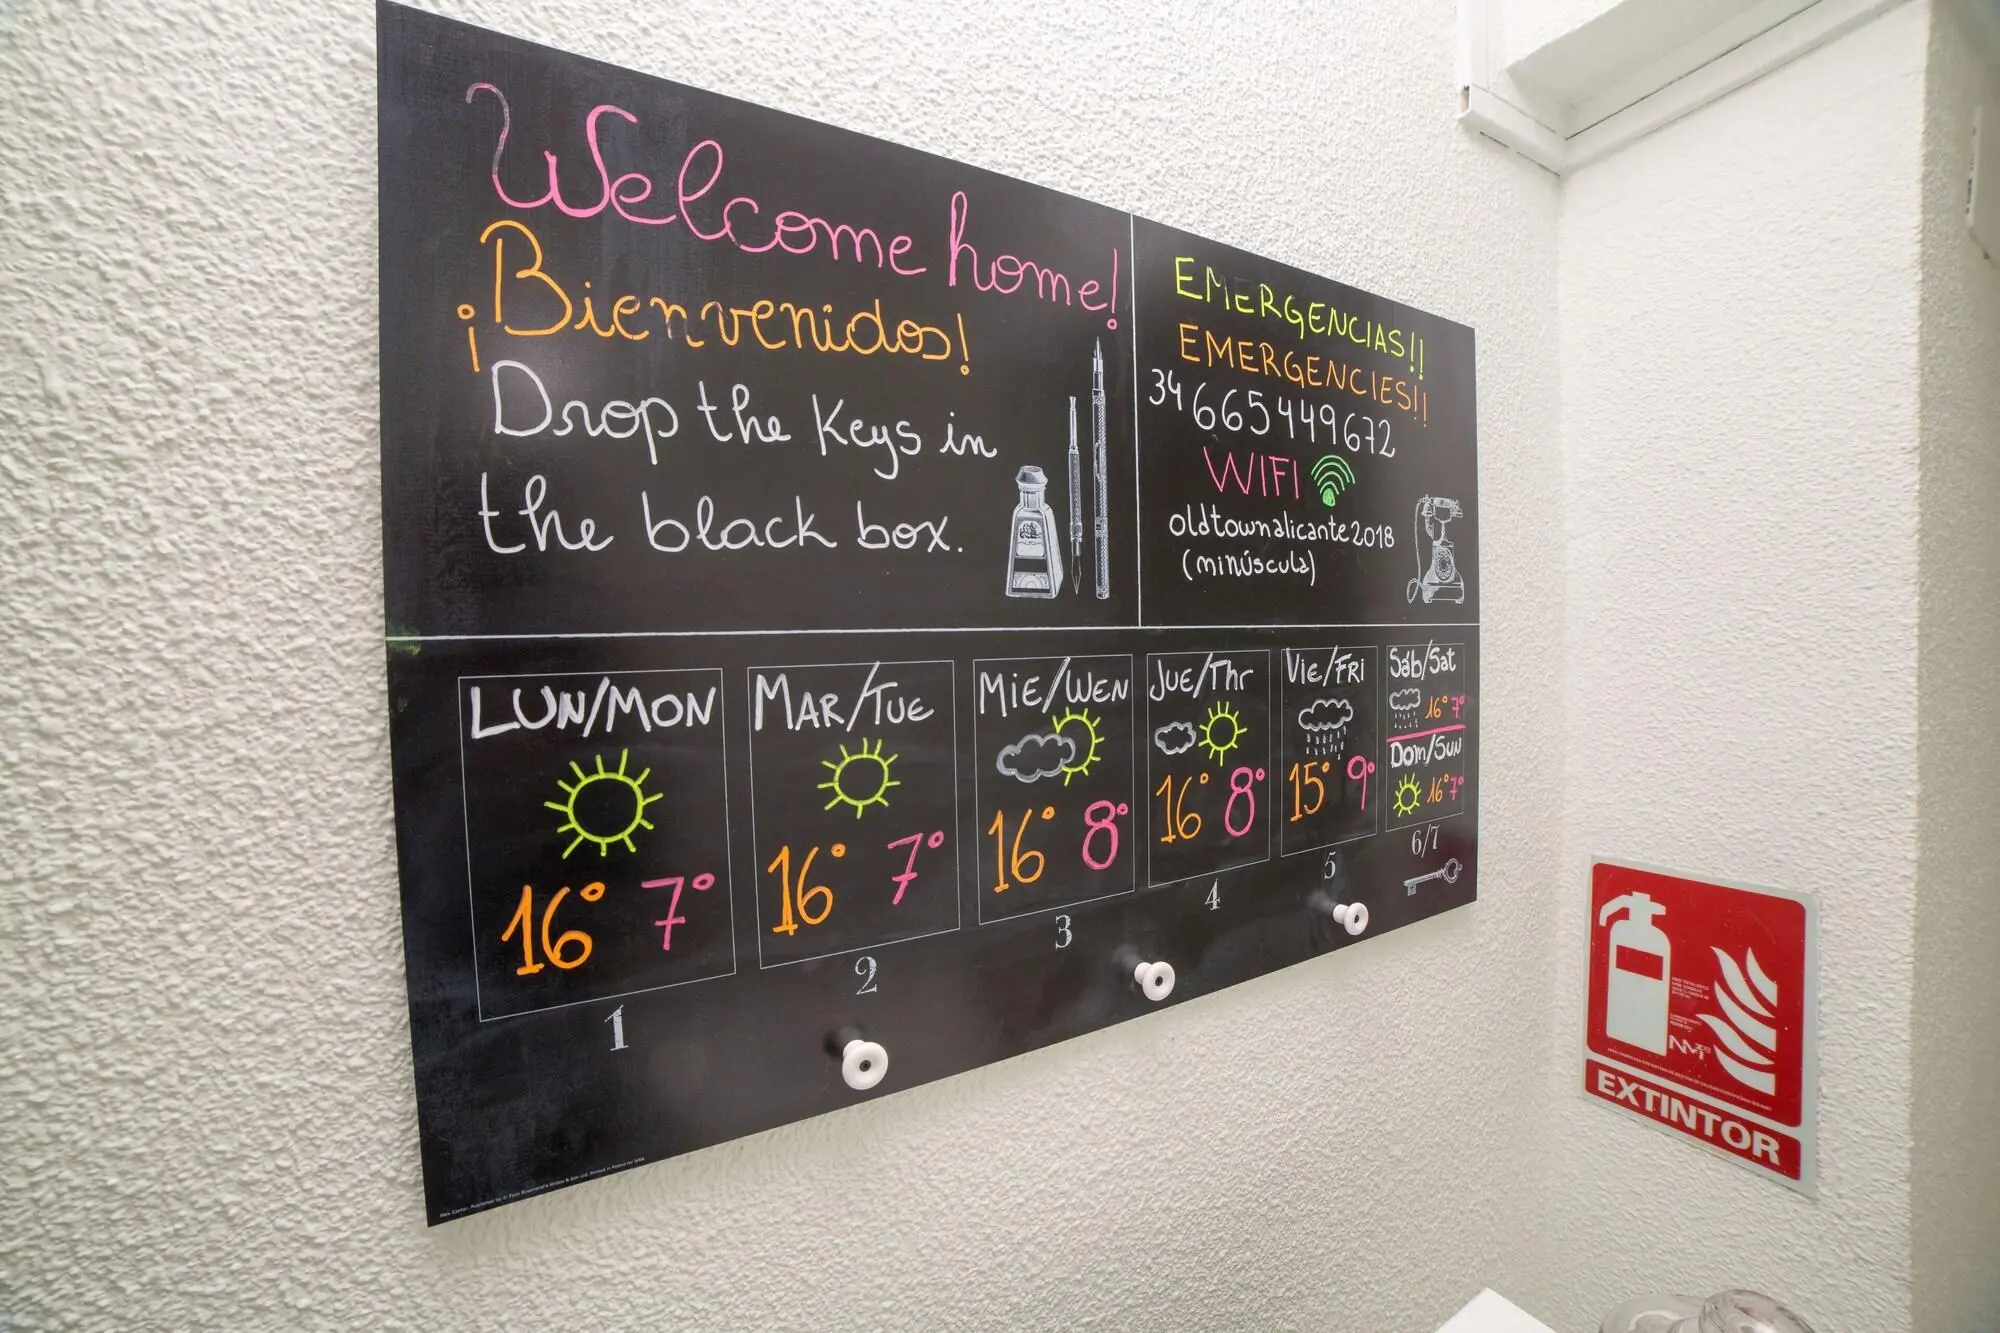 Welcome home!
¡Bienvenidos!
Drop the keys in
the black box.
EMERGENCIAS!!
EMERGENCIES!!
34 665449672
WIFI
oldtownalicante2018
(minúscula)
LUN/MON
16° 7°
1
MAR/TUE
16° 7°
2
MIE/WEN
16° 8°
3
JUE/Thr
16° 8°
4
Vie/FRI
15° 9°
5
Sáb/Sat
16° 7°
Dom/SUN
16° 7°
6/7
EXTINTOR